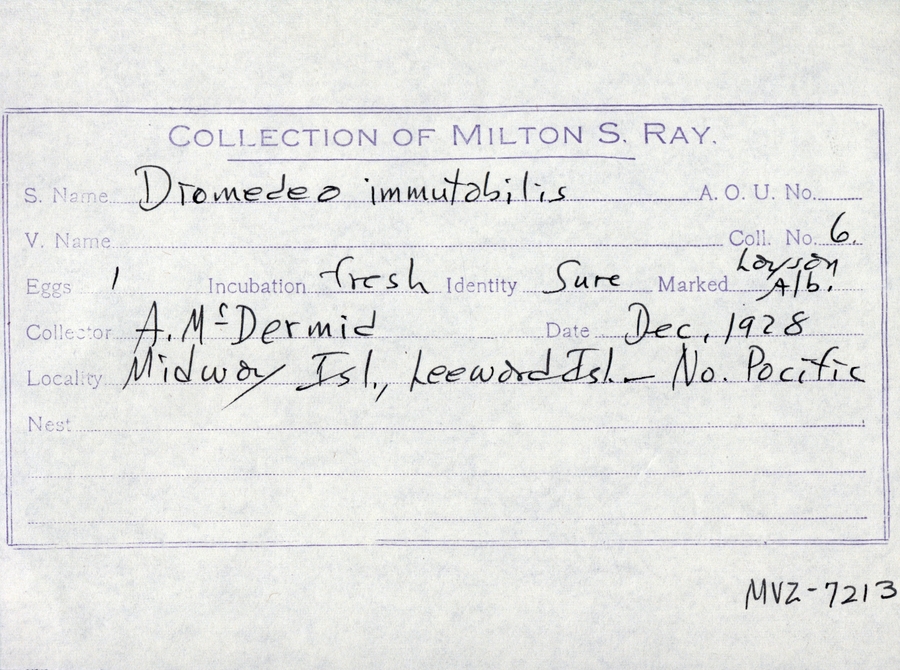 COLLECTION OF MILTON S. RAY.
S. Name Diomedea immutabilis A. O. U. No.
V. Name Coll. No. 6.
Eggs 1 Incubation fresh Identity Sure Marked Laysan Alb.
Collector A. McDermid Date Dec, 1928
Locality Midway Isl., Leeward Isl. – No. Pacific
Nest
MVZ-7213